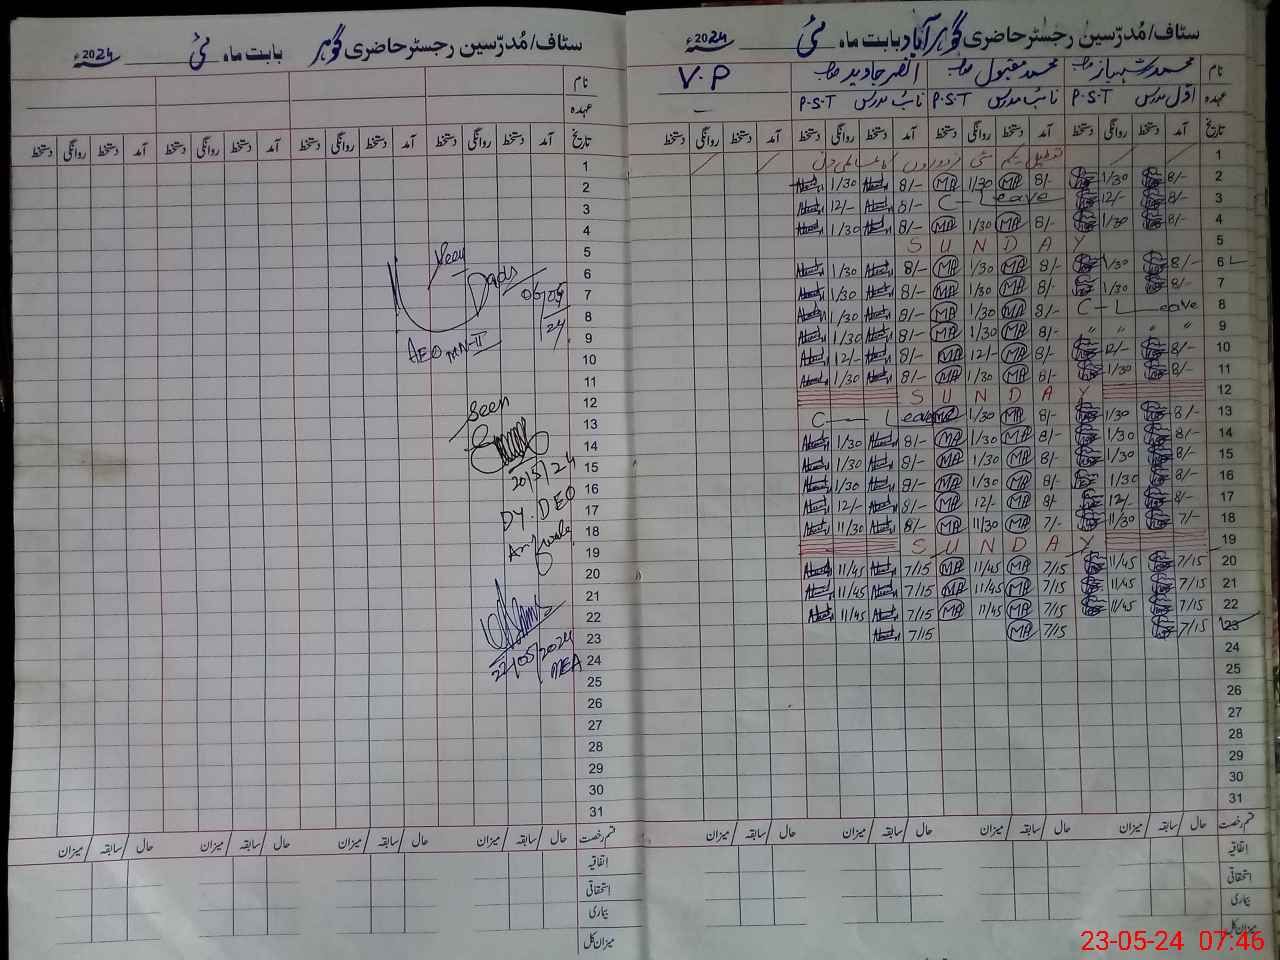 سٹاف/مُدرّسین رجسٹر حاضری گوہرآباد بابت ماہ مئی 2024ء
نام محمد شہباز صاحب محمد مقبول صاحب انصر جاوید صاحب V.P
عہدہ اوّل مدرس P.S.T نائب مدرس P.S.T نائب مدرس P.S.T –
تاریخ آمد دستخط روانگی دستخط آمد دستخط روانگی دستخط آمد دستخط روانگی دستخط آمد دستخط روانگی دستخط
1 تعطیل یکم مئی
2 8/- 1/30 8/- MA 1/30 MA 8/- 1/30
3 8/- 12/- C – Leave 8/- 12/-
4 8/- 1/30 8/- MA 1/30 MA 8/- 1/30
5 SUNDAY
6 8/- 1/30 8/- MA 1/30 MA 8/- 1/30
7 8/- 1/30 8/- MA 1/30 MA 8/- 1/30
8 C – Leave 8/- MA 1/30 MA 8/- 1/30
9 " " " " 8/- MA 1/30 MA 8/- 1/30
10 8/- 12/- 8/- MA 12/- MA 8/- 12/-
11 8/- 1/30 8/- MA 1/30 MA 8/- 1/30
12 SUNDAY
13 8/- 1/30 8/- MA 1/30 MA C – Leave
14 8/- 1/30 8/- MA 1/30 MA 8/- 1/30
15 8/- 1/30 8/- MA 1/30 MA 8/- 1/30
16 8/- 1/30 8/- MA 1/30 MA 8/- 1/30
17 8/- 12/- 8/- MA 12/- MA 8/- 12/-
18 7/- 11/30 7/- MA 11/30 MA 8/- 11/30
19 SUNDAY
20 7/15 11/45 7/15 MA 11/45 MA 7/15 11/45
21 7/15 11/45 7/15 MA 11/45 MA 7/15 11/45
22 7/15 11/45 7/15 MA 11/45 MA 7/15 11/45
23 7/15 7/15 MA 7/15
24
25
26
27
28
29
30
31
قسم رخصت حال/سابقہ/میزان حال/سابقہ/میزان حال/سابقہ/میزان حال/سابقہ/میزان
اتفاقیہ
استحقاقی
بیماری
میزان کل
سٹاف/مُدرّسین رجسٹر حاضری گوہر بابت ماہ مئی 2024ء
نام
عہدہ
تاریخ آمد دستخط روانگی دستخط آمد دستخط روانگی دستخط آمد دستخط روانگی دستخط آمد دستخط روانگی دستخط
1
2
3
4
5
6
7
8
9
10
11
12
13
14
15
16
17
18
19
20
21
22
23
24
25
26
27
28
29
30
31
Seen
06/05/24
AEO MN-II
Seen
20/5/24
DY. DEO
22/05/2024
MEA
قسم رخصت حال/سابقہ/میزان حال/سابقہ/میزان حال/سابقہ/میزان حال/سابقہ/میزان
اتفاقیہ
استحقاقی
بیماری
میزان کل
23-05-24 07:46